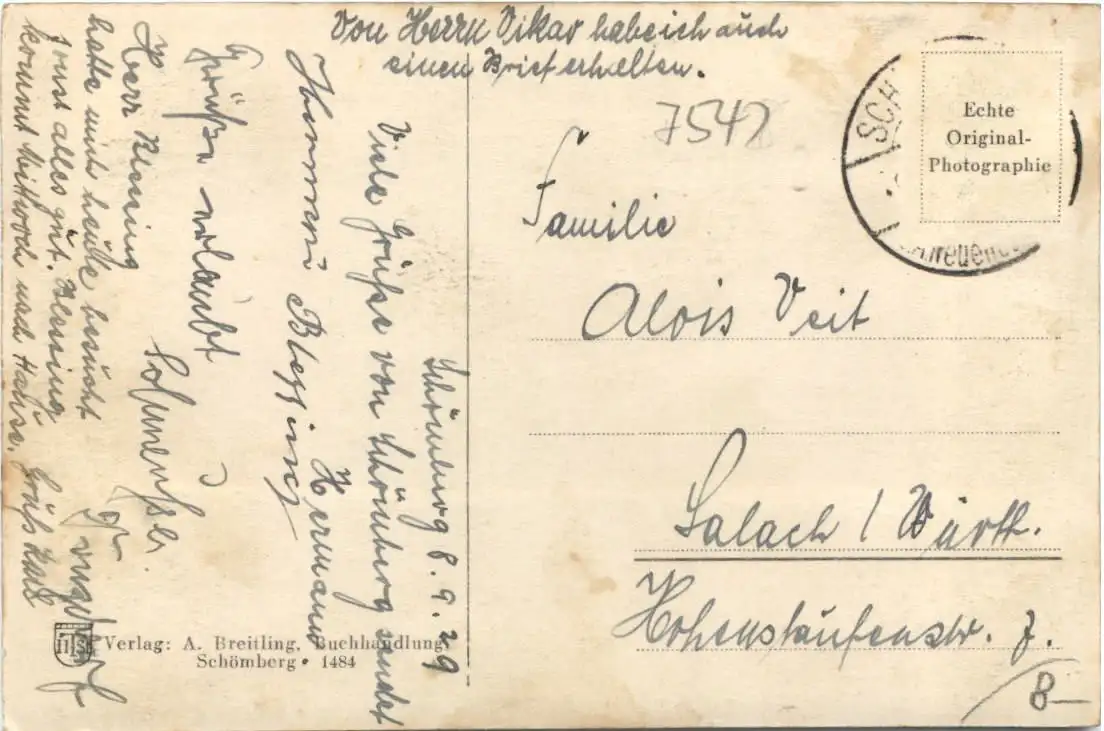 Von Herrn Vikar habe ich auch
einen Brief erhalten.
7542
Schömberg 8. 9. 29
Viele Grüße von Schömberg sendet
Hermann
Thommi Blessing
Grüße erlaubt
Herr Blessing
hatte mich heute besucht
sonst alles gut. Blessing
kommt Mittwoch nach Hause. Gruß
Familie
Alois Veit
Salach / Württ.
Hohenstaufenstr. 7.
8—
SCH
Echte
Original-
Photographie
Verlag: A. Breitling, Buchhandlung
Schömberg • 1484